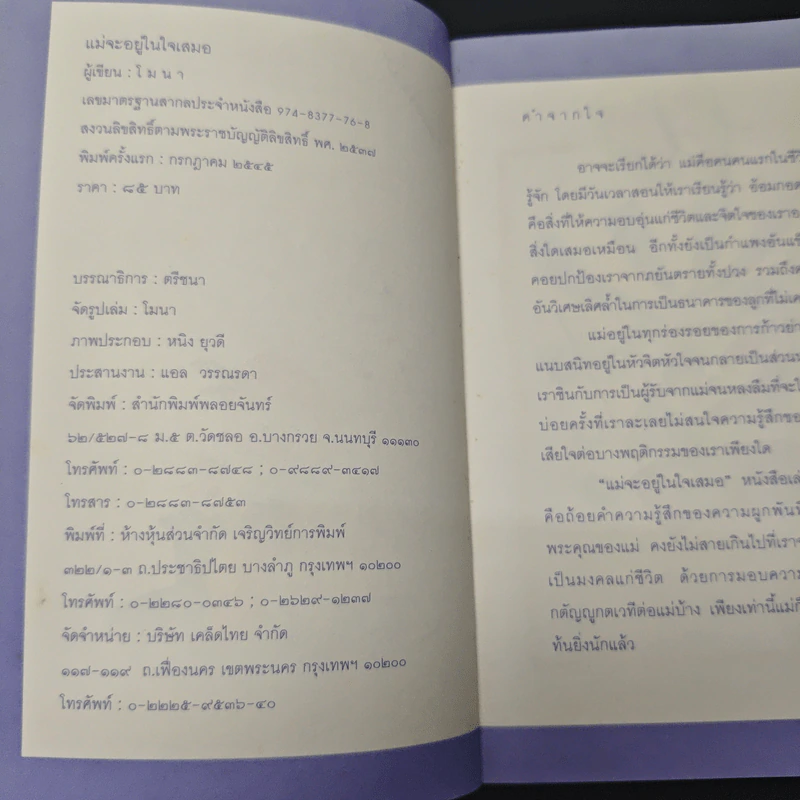 แม่จะอยู่ในใจเสมอ
ผู้เขียน : โ ม น า
เลขมาตรฐานสากลประจำหนังสือ 974-8377-76-8
สงวนลิขสิทธิ์ตามพระราชบัญญัติลิขสิทธิ์ พศ. ๒๕๓๗
พิมพ์ครั้งแรก : กรกฎาคม ๒๕๔๕
ราคา : ๘๕ บาท
บรรณาธิการ : ตรีชนา
จัดรูปเล่ม : โมนา
ภาพประกอบ : หนิง ยุวดี
ประสานงาน : แอล วรรณรดา
จัดพิมพ์ : สำนักพิมพ์พลอยจันทร์
๖๒/๕๒๗-๘ ม.๕ ต.วัดชลอ อ.บางกรวย จ.นนทบุรี ๑๑๑๓๐
โทรศัพท์ : ๐-๒๘๘๓-๘๗๔๘ ; ๐-๙๘๘๙-๓๔๑๗
โทรสาร : ๐-๒๘๘๓-๘๗๕๓
พิมพ์ที่ : ห้างหุ้นส่วนจำกัด เจริญวิทย์การพิมพ์
๓๒๒/๑-๓ ถ.ประชาธิปไตย บางลำภู กรุงเทพฯ ๑๐๒๐๐
โทรศัพท์ : ๐-๒๒๘๐-๐๓๔๖ ; ๐-๒๖๒๙-๑๒๓๗
จัดจำหน่าย : บริษัท เคล็ดไทย จำกัด
๑๑๗-๑๑๙ ถ.เฟื่องนคร เขตพระนคร กรุงเทพฯ ๑๐๒๐๐
โทรศัพท์ : ๐-๒๒๒๕-๙๕๓๖-๔๐
คำจากใจ
อาจจะเรียกได้ว่า แม่คือคนคนแรกในชีวิ
รู้จัก โดยมีวันเวลาสอนให้เราเรียนรู้ว่า อ้อมกอด
คือสิ่งที่ให้ความอบอุ่นแก่ชีวิตและจิตใจของเราอ
สิ่งใดเสมอเหมือน อีกทั้งยังเป็นกำแพงอันแข็
คอยปกป้องเราจากภยันตรายทั้งปวง รวมถึงค
อันวิเศษเลิศล้ำในการเป็นธนาคารของลูกที่ไม่เค
แม่อยู่ในทุกร่องรอยของการก้าวย่า
แนบสนิทอยู่ในหัวจิตหัวใจจนกลายเป็นส่วนห
เราชินกับการเป็นผู้รับจากแม่จนหลงลืมที่จะใ
บ่อยครั้งที่เราละเลยไม่สนใจความรู้สึกขอ
เสียใจต่อบางพฤติกรรมของเราเพียงใด
"แม่จะอยู่ในใจเสมอ" หนังสือเล่
คือถ้อยคำความรู้สึกของความผูกพันที่
พระคุณของแม่ คงยังไม่สายเกินไปที่เราจ
เป็นมงคลแก่ชีวิต ด้วยการมอบความ
กตัญญูกตเวทีต่อแม่บ้าง เพียงเท่านี้แม่ก็
ท้นยิ่งนักแล้ว